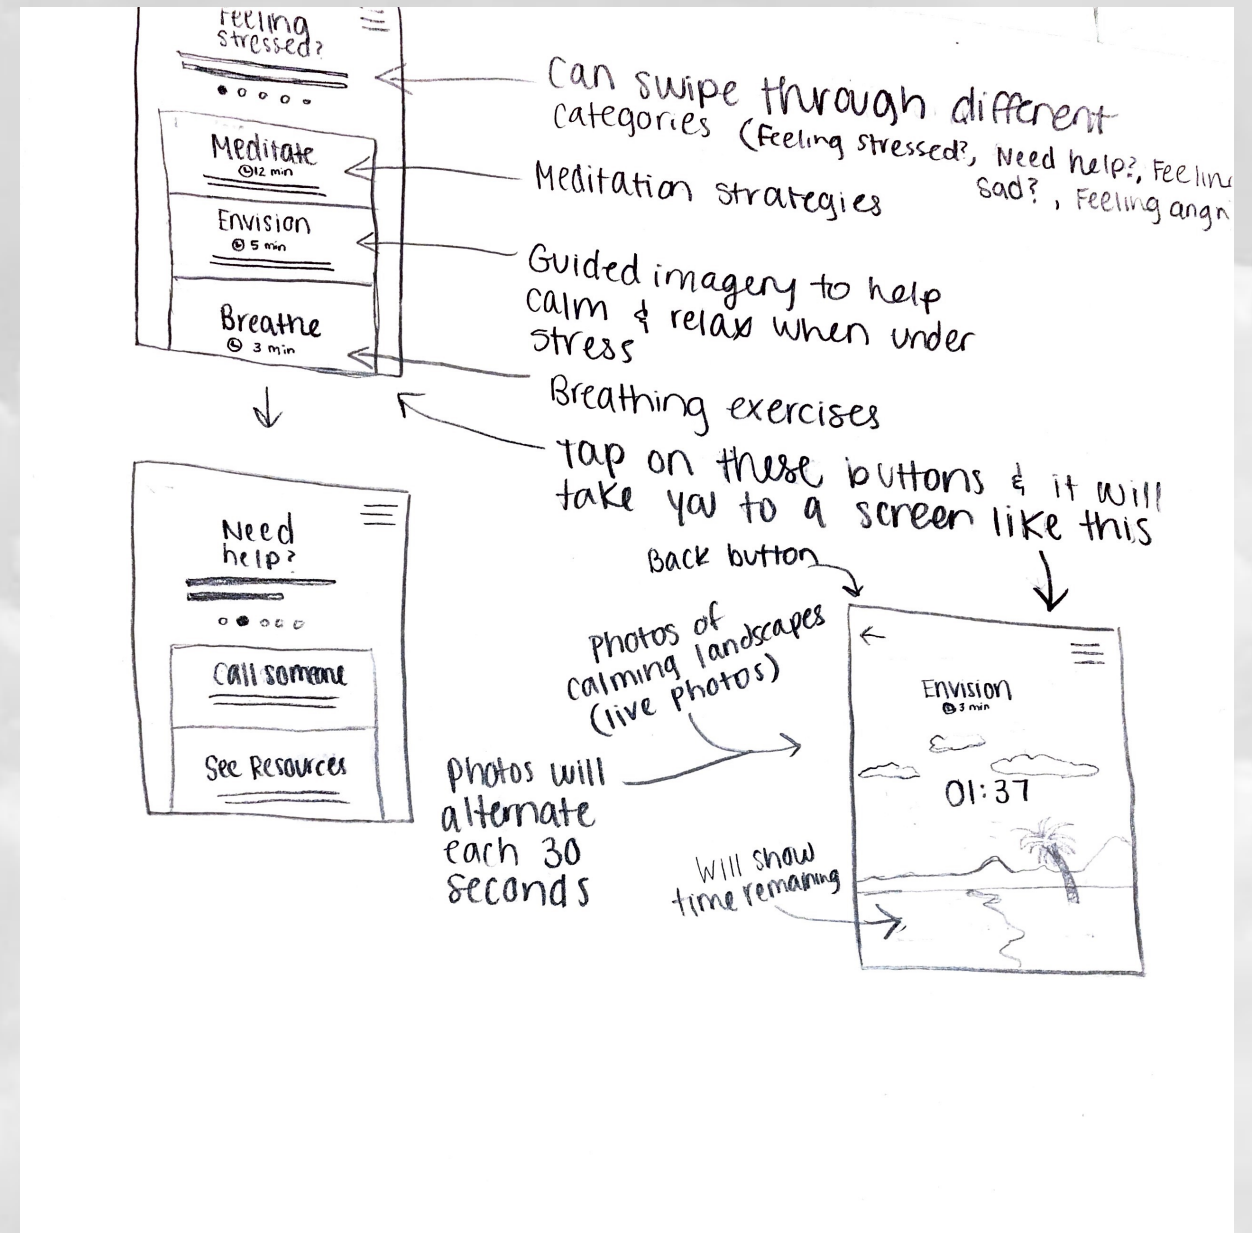 Feeling
stressed?
Meditate
12 min
Envision
5 min
Breathe
3 min
Can swipe through different
categories (Feeling stressed?, Need help?, Feelin
sad?, Feeling angr
Meditation strategies
Guided imagery to help
calm & relax when under
stress
Breathing exercises
Tap on these buttons & it will
take you to a screen like this
Need
help?
Call someone
See Resources
Back button
Photos of
calming landscapes
(live photos)
Photos will
alternate
each 30
seconds
Will show
time remaining
Envision
3 min
01:37